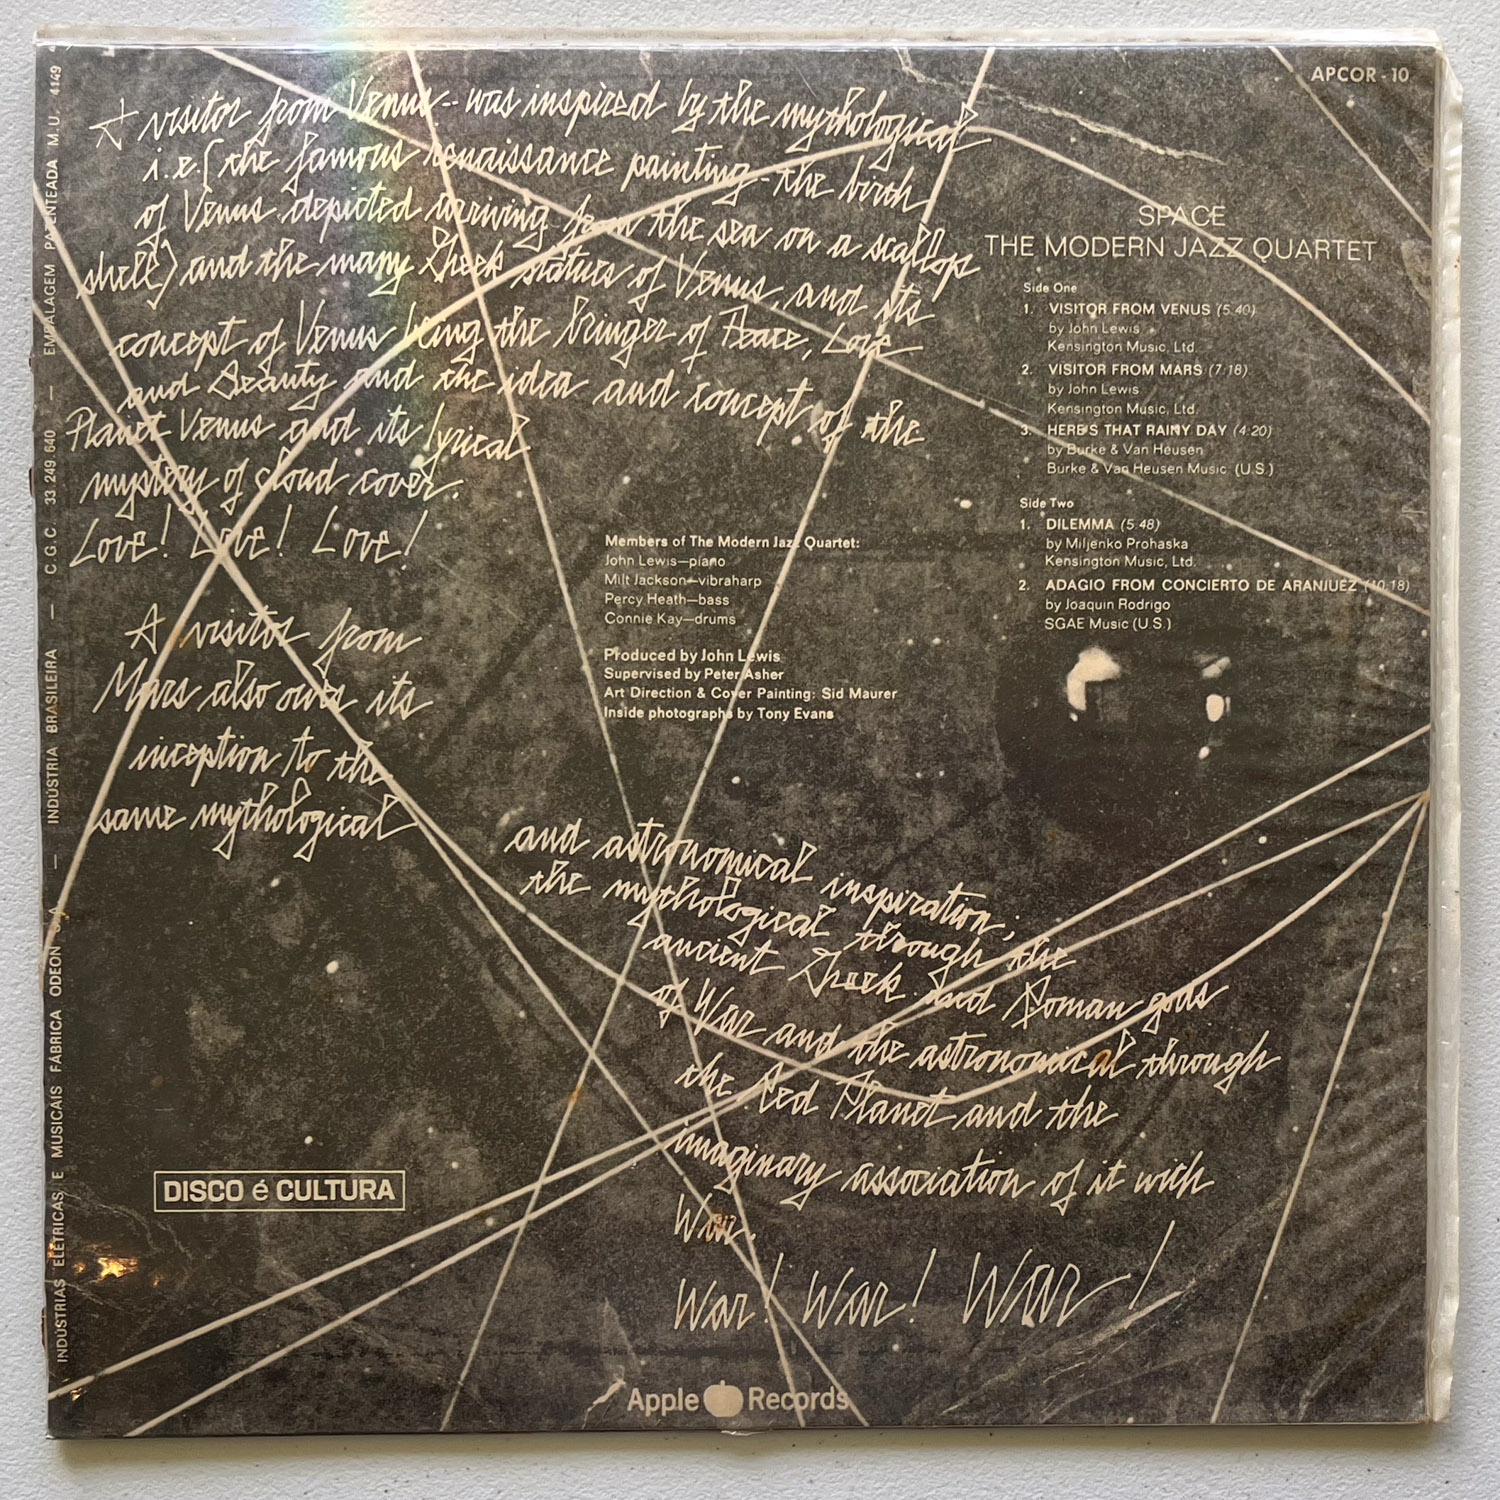 A visitor from Venus-- was inspired by the mythological
i.e. (the famous renaissance painting - the birth
of Venus depicted arriving from the sea on a scallop
shell) and the many Greek statues of Venus, and its
concept of Venus being the bringer of Peace, Love
and Beauty and the idea and concept of the
Planet Venus and its lyrical
mystery of cloud cover.
Love! Love! Love!
A visitor from
Mars also owes its
inception to the
same mythological
and astronomical inspiration;
the mythological through the
ancient Greek and Roman gods
of War and the astronomical through
the Red Planet and the
imaginary association of it with
War.
War! War! War!
APCOR - 10
SPACE
THE MODERN JAZZ QUARTET
Side One
1. VISITOR FROM VENUS (5:40)
by John Lewis
Kensington Music, Ltd.
2. VISITOR FROM MARS (7:18)
by John Lewis
Kensington Music, Ltd.
3. HERE'S THAT RAINY DAY (4:20)
by Burke & Van Heusen
Burke & Van Heusen Music (U.S.)
Side Two
1. DILEMMA (5:48)
by Miljenko Prohaska
Kensington Music, Ltd.
2. ADAGIO FROM CONCIERTO DE ARANJUEZ (10:18)
by Joaquin Rodrigo
SGAE Music (U.S.)
Members of The Modern Jazz Quartet:
John Lewis—piano
Milt Jackson—vibraharp
Percy Heath—bass
Connie Kay—drums
Produced by John Lewis
Supervised by Peter Asher
Art Direction & Cover Painting: Sid Maurer
Inside photographs by Tony Evans
DISCO é CULTURA
Apple Records
INDÚSTRIAS ELÉTRICAS E MUSICAIS FÁBRICA ODEON S.A. — INDÚSTRIA BRASILEIRA — C.G.C. 33.249.640 — EMBALAGEM PATENTEADA M.U. 4149